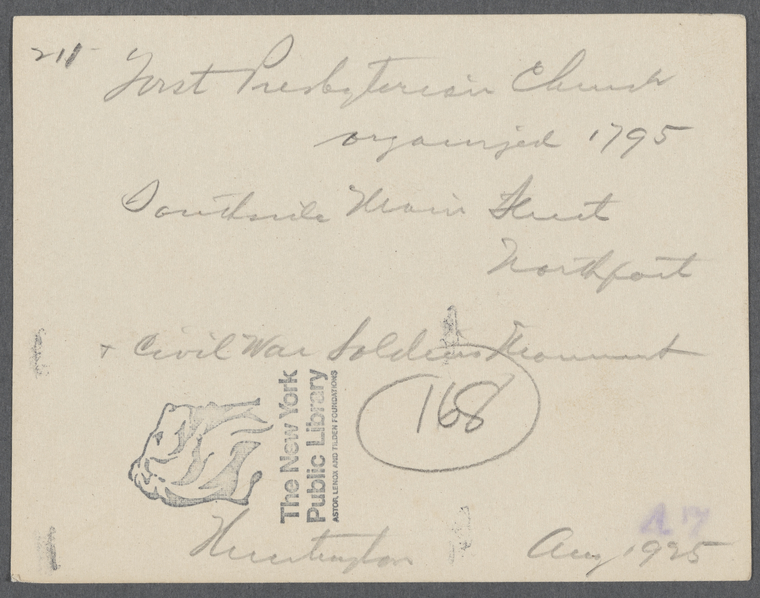 211
First Presbyterian Church
organized 1795
Southside Main Street
Northport
+ Civil War Soldiers Monument
168
The New York
Public Library
ASTOR, LENOX AND TILDEN FOUNDATIONS
A 7
Huntington Aug 1925